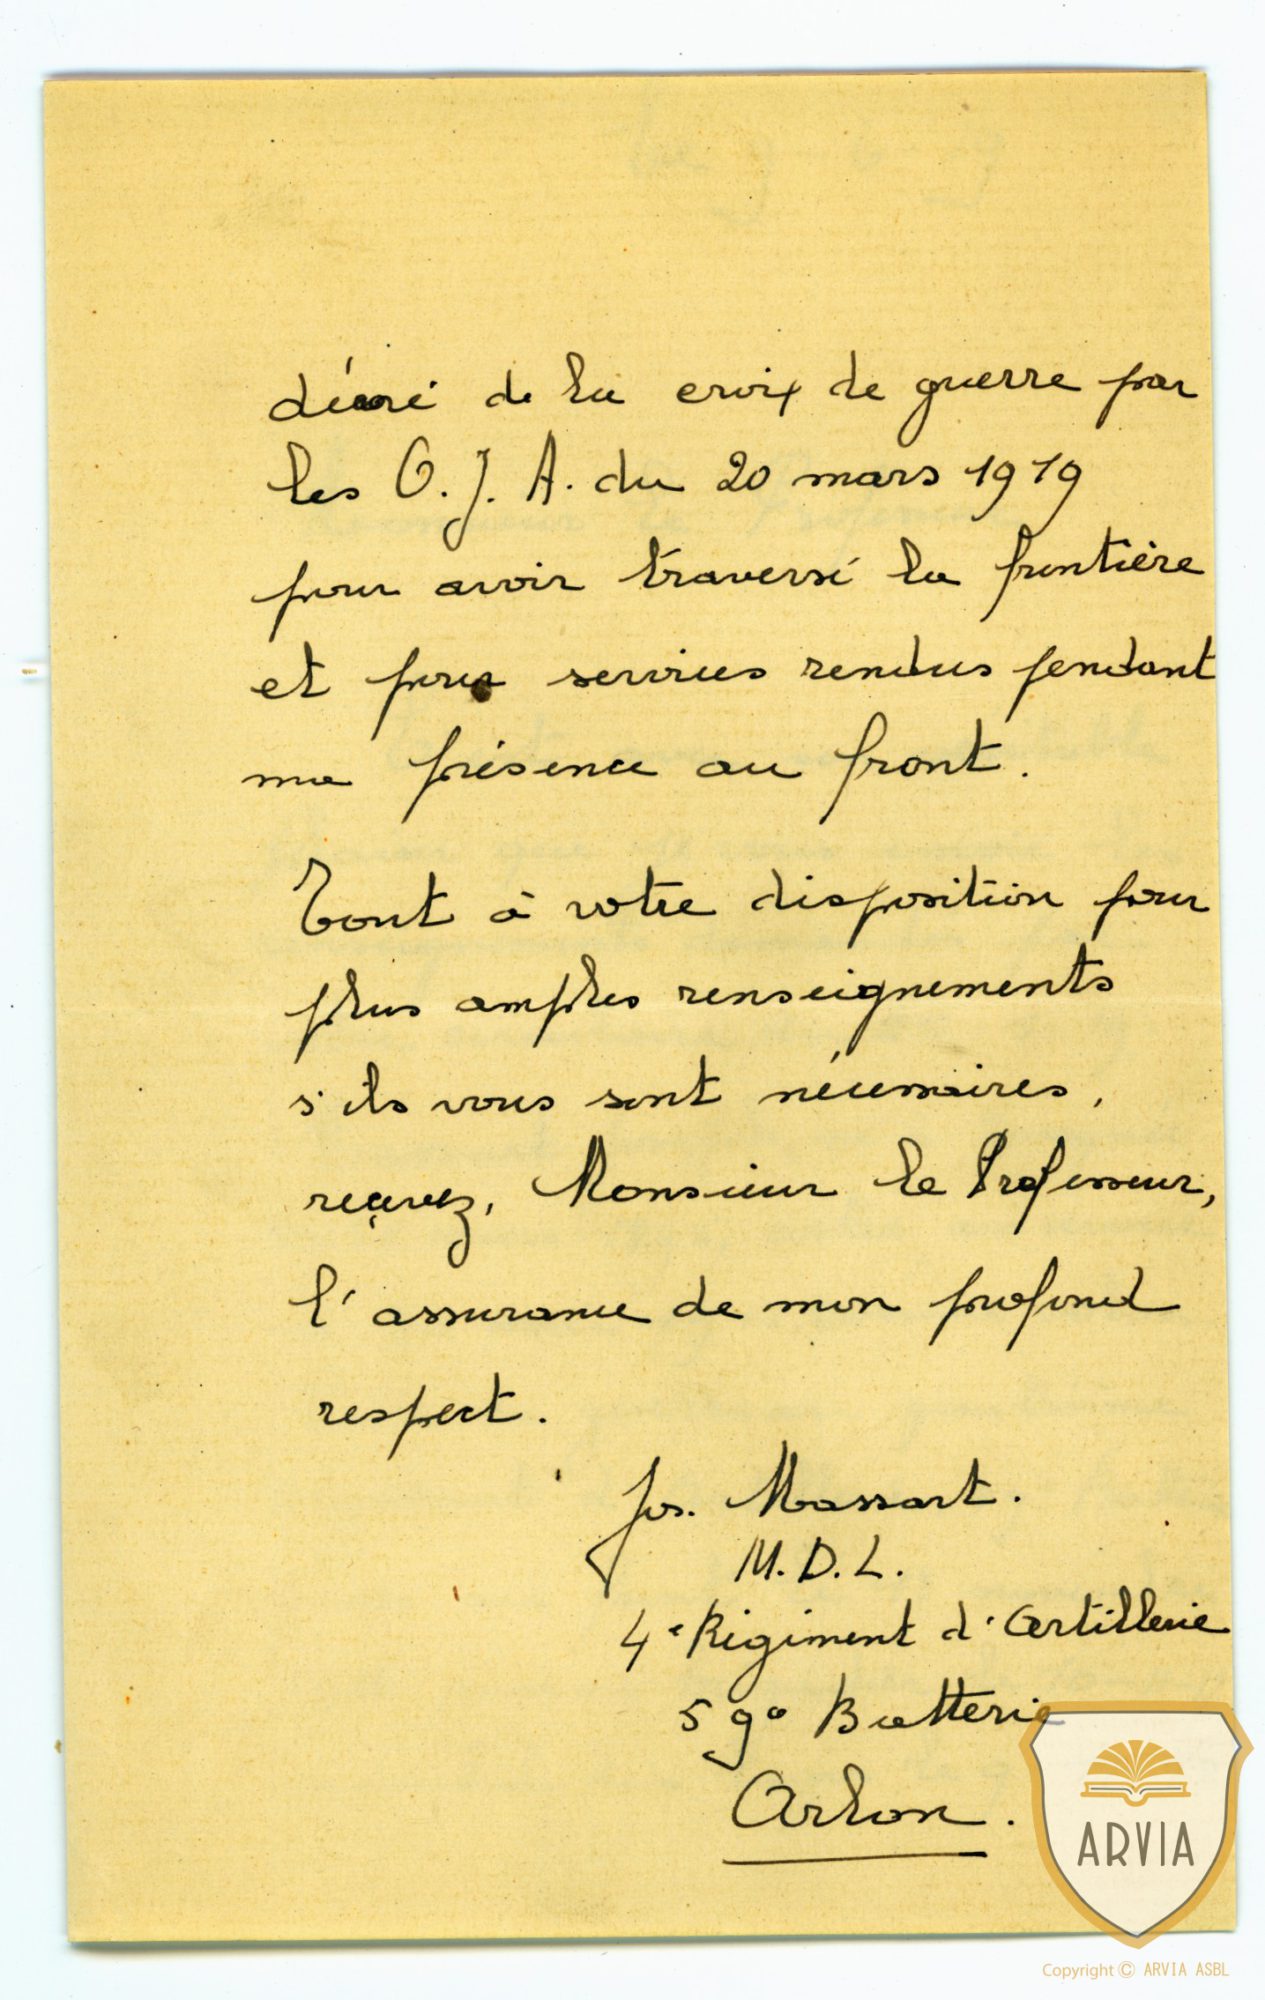 décoré de la croix de guerre par
les O. J. A. du 20 mars 1919
pour avoir traversé la frontière
et pour services rendus pendant
ma présence au front.
Tout à votre disposition pour
plus amples renseignements
s'ils vous sont nécessaires,
reçevez, Monsieur le Professeur,
l'assurance de mon profond
respect.
Jos. Massart.
M. D. L.
4e Régiment d'Artillerie
59e Batterie
Arlon.
ARVIA
Copyright © ARVIA ASBL